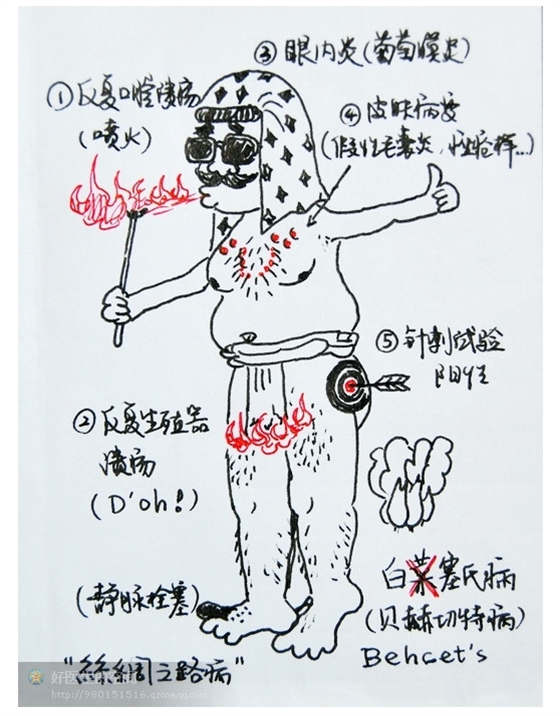 ③ 眼内炎(葡萄膜炎)
① 反复口腔溃疡
(喷火)
④ 皮肤病变
(假性毛囊炎、痤疮样...)
⑤ 针刺试验
阳性
② 反复生殖器
溃疡
(D'oh!)
白菜塞氏病
(贝赫切特病)
Behcet's
(静脉栓塞)
"丝绸之路病"
http://980151516.qzone.qq.com